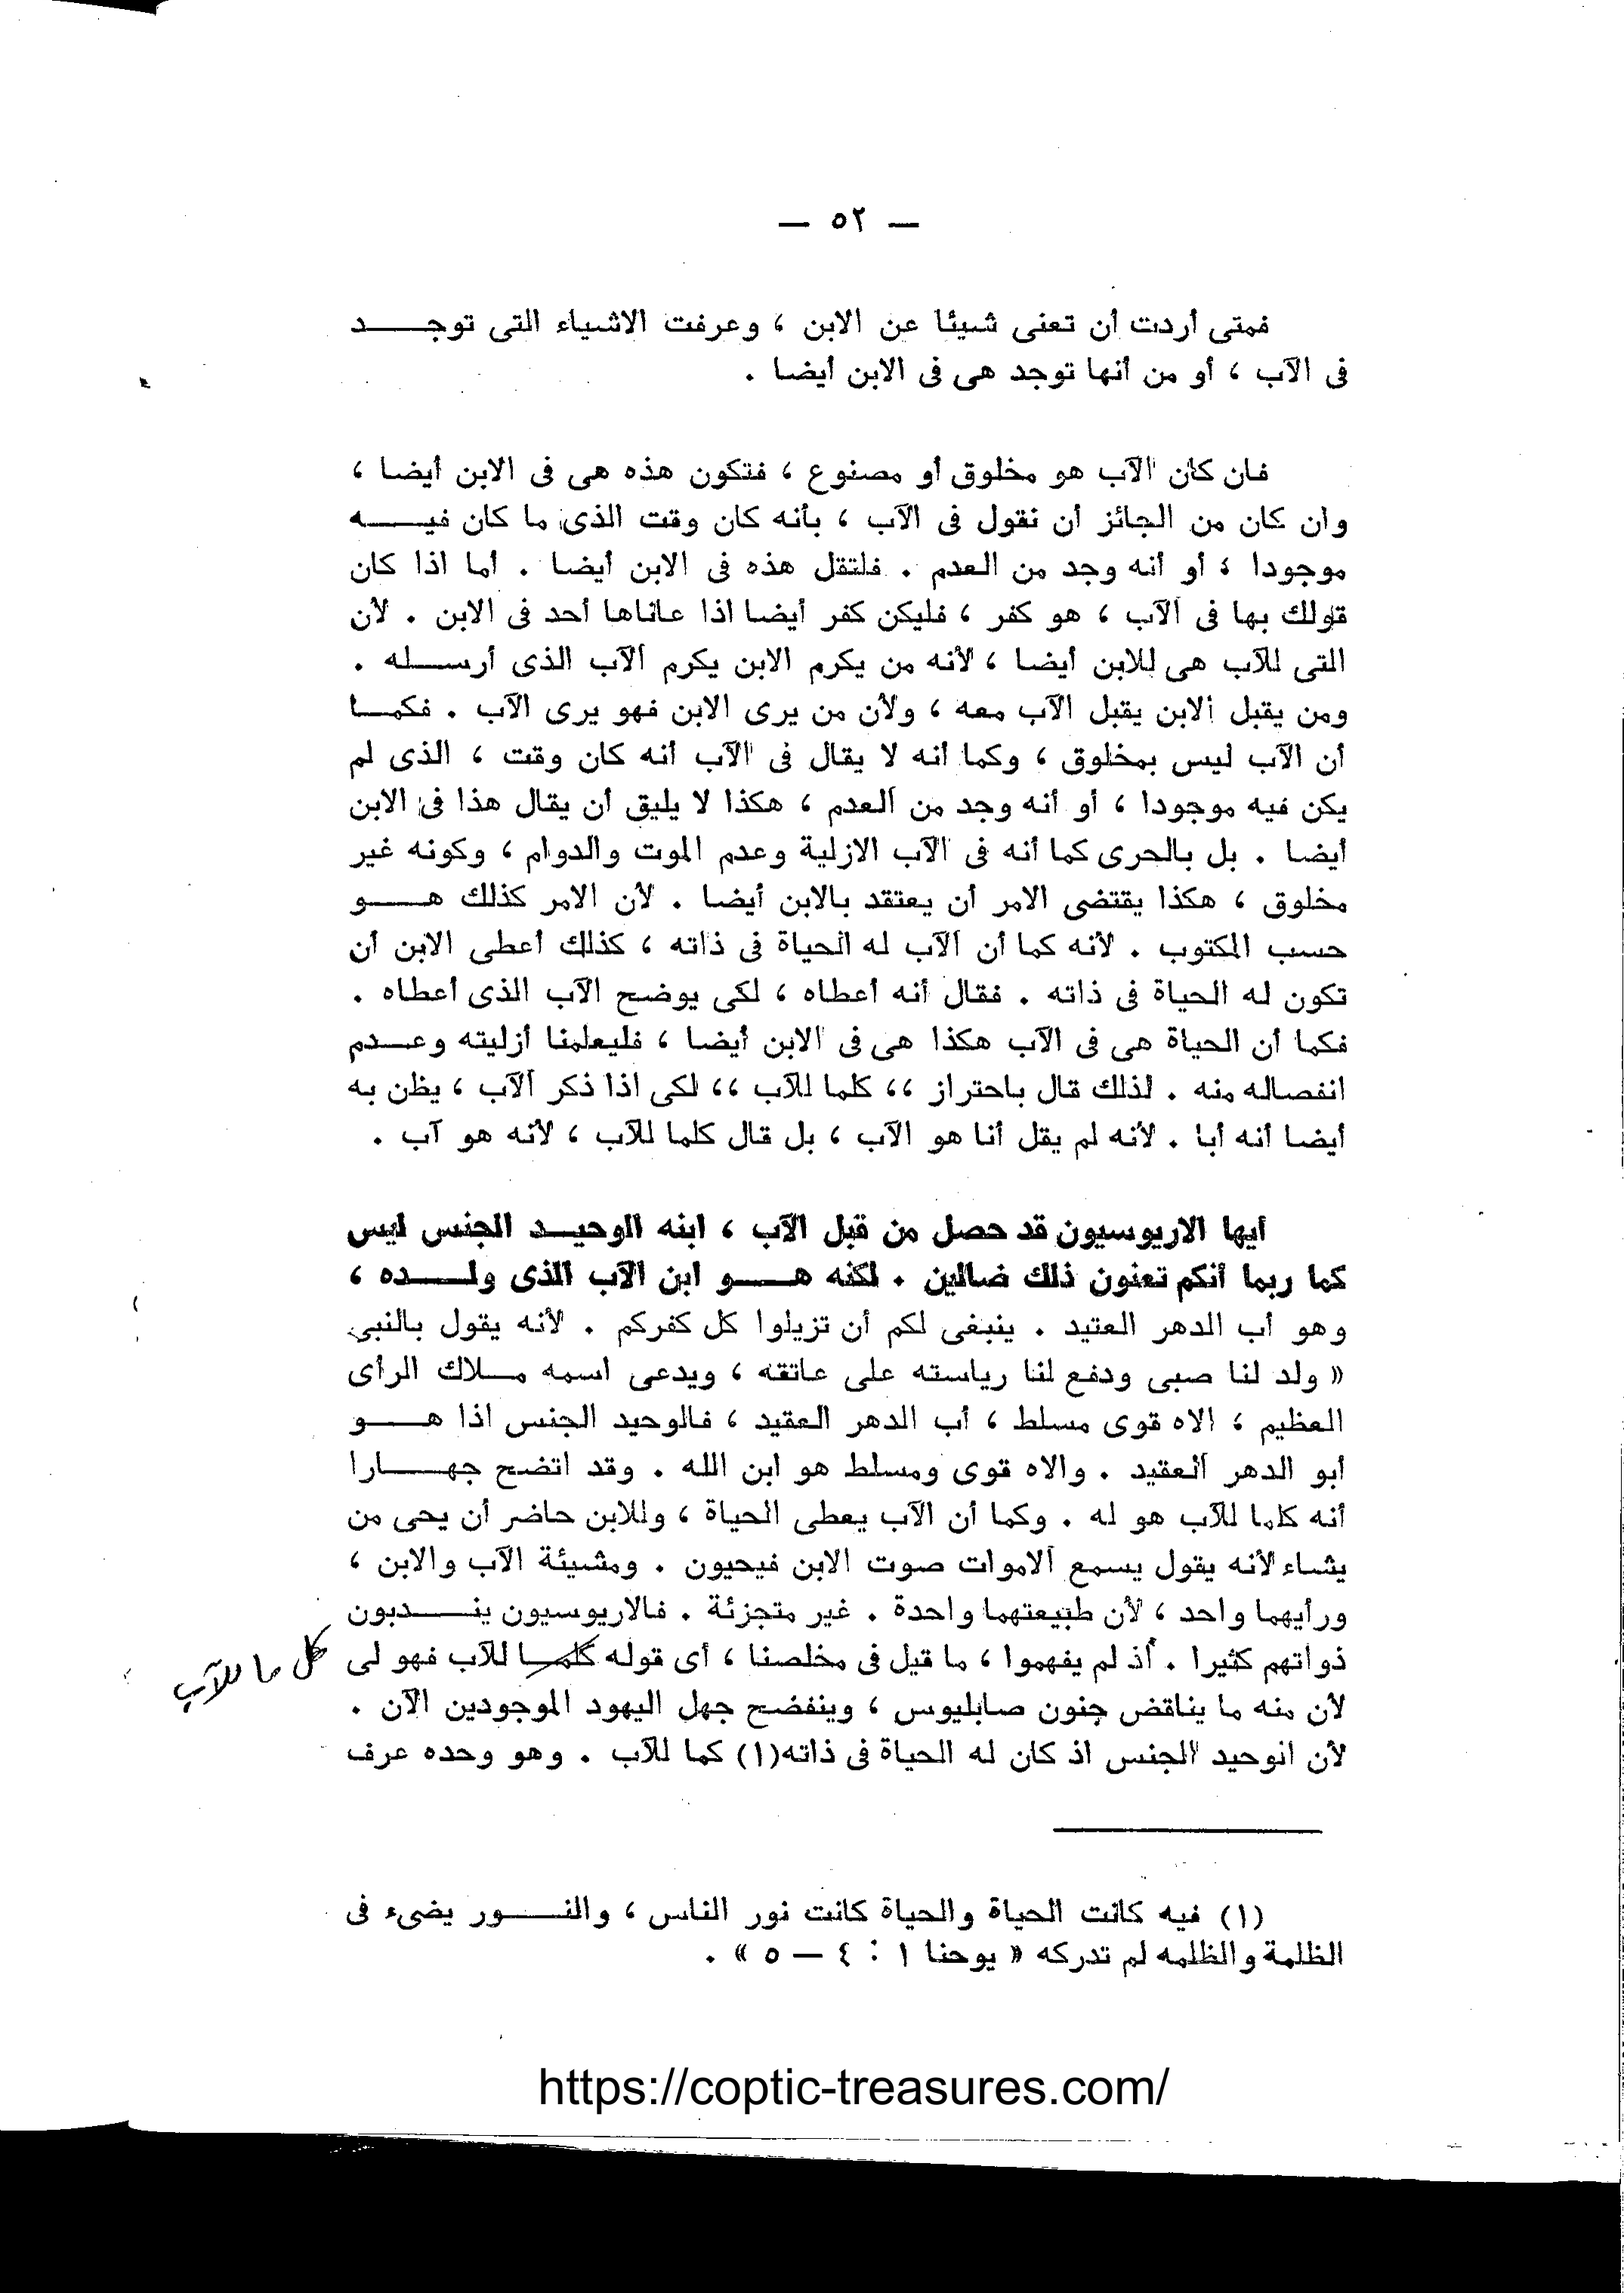 — ٥٢ —
فمتى أردت أن تعنى شيئا عن الابن ، وعرفت الاشياء التى توجد
فى الآب ، أو من أنها توجد هى فى الابن أيضا .
فان كان الآب هو مخلوق أو مصنوع ، فتكون هذه هى فى الابن أيضا ،
وان كان من الجائز أن نقول فى الآب ، بأنه كان وقت الذى ما كان فيه
موجودا ، أو أنه وجد من العدم . فلتقل هذه فى الابن أيضا . أما اذا كان
قولك بها فى الآب ، هو كفر ، فليكن كفر أيضا اذا عاناها أحد فى الابن . لأن
التى للآب هى للابن أيضا ، لأنه من يكرم الابن يكرم الآب الذى أرسله .
ومن يقبل الابن يقبل الآب معه ، ولأن من يرى الابن فهو يرى الآب . فكما
أن الآب ليس بمخلوق ، وكما أنه لا يقال فى الآب أنه كان وقت ، الذى لم
يكن فيه موجودا ، أو أنه وجد من العدم ، هكذا لا يليق أن يقال هذا فى الابن
أيضا . بل بالحرى كما أنه فى الآب الازلية وعدم الموت والدوام ، وكونه غير
مخلوق ، هكذا يقتضى الامر أن يعتقد بالابن أيضا . لأن الامر كذلك هو
حسب المكتوب . لأنه كما أن الآب له الحياة فى ذاته ، كذلك أعطى الابن أن
تكون له الحياة فى ذاته . فقال أنه أعطاه ، لكى يوضح الآب الذى أعطاه .
فكما أن الحياة هى فى الآب هكذا هى فى الابن أيضا ، فليعلمنا أزليته وعدم
انفصاله منه . لذلك قال باحتراز ،، كلما للآب ،، لكى اذا ذكر الآب ، يظن به
أيضا أنه أبا . لأنه لم يقل أنا هو الآب ، بل قال كلما للآب ، لأنه هو آب .
أيها الاريوسيون قد حصل من قبل الآب ، ابنه الوحيد الجنس ليس
كما ربما أنكم تعنون ذلك ضالين . لكنه هو ابن الآب الذى ولده ،
وهو أب الدهر العتيد . ينبغى لكم أن تزيلوا كل كفركم . لأنه يقول بالنبى
« ولد لنا صبى ودفع لنا رياسته على عاتقه ، ويدعى اسمه ملاك الرأى
العظيم ، الاه قوى مسلط ، أب الدهر العقيد ، فالوحيد الجنس اذا هو
أبو الدهر العقيد . والاه قوى ومسلط هو ابن الله . وقد اتضح جهارا
أنه كلما للآب هو له . وكما أن الآب يعطى الحياة ، وللابن حاضر أن يحى من
يشاء لأنه يقول يسمع الاموات صوت الابن فيحيون . ومشيئة الآب والابن ،
ورأيهما واحد ، لأن طبيعتهما واحدة . غير متجزئة . فالاريوسيون يندبون
ذواتهم كثيرا . أذ لم يفهموا ، ما قيل فى مخلصنا ، أى قوله كلما للآب فهو لى
كل ما للآب
لأن منه ما يناقض جنون صابليوس ، وينفضح جهل اليهود الموجودين الآن .
لأن الوحيد الجنس اذ كان له الحياة فى ذاته(١) كما للآب . وهو وحده عرف
(١) فيه كانت الحياة والحياة كانت نور الناس ، والنور يضىء فى
الظلمة والظلمه لم تدركه « يوحنا ١ : ٤ — ٥ » .
https://coptic-treasures.com/